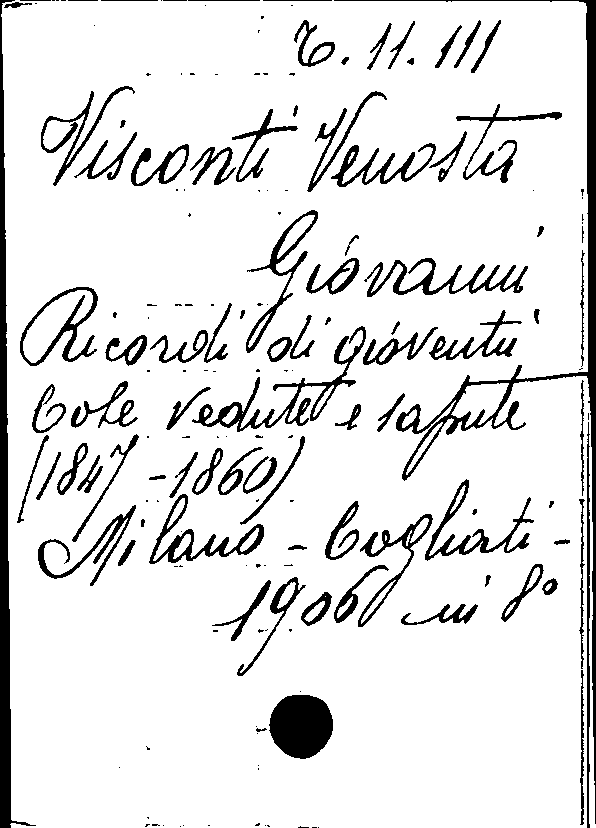 7. 11. 111
Visconti Venosta
Giovanni
Ricordi di gioventù
Cose vedute e sapute
(1847 - 1860)
Milano - Cogliati -
1906 in 8°